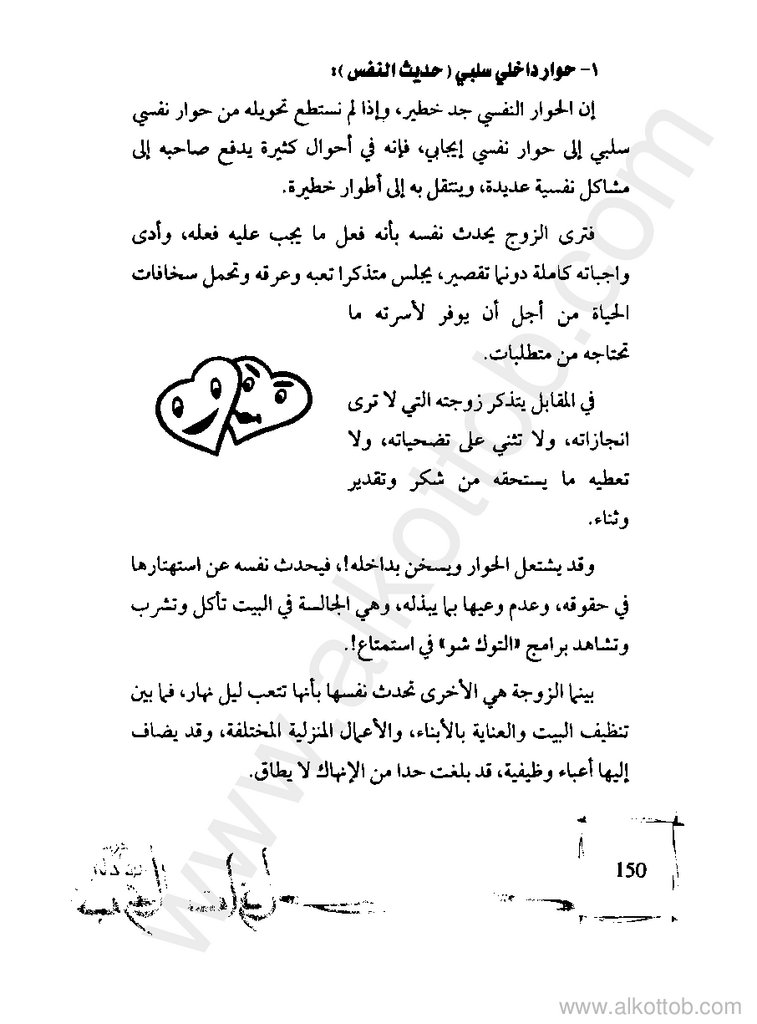 ١- حوار داخلي سلبي (حديث النفس):
إن الحوار النفسي جد خطير، وإذا لم نستطع تحويله من حوار نفسي
سلبي إلى حوار نفسي إيجابي، فإنه في أحوال كثيرة يدفع صاحبه إلى
مشاكل نفسية عديدة، وينتقل به إلى أطوار خطيرة.
فترى الزوج يحدث نفسه بأنه فعل ما يجب عليه فعله، وأدى
واجباته كاملة دونما تقصير، يجلس متذكرا تعبه وعرقه وتحمل سخافات
الحياة من أجل أن يوفر لأسرته ما
تحتاجه من متطلبات.
في المقابل يتذكر زوجته التي لا ترى
انجازاته، ولا تثني على تضحياته، ولا
تعطيه ما يستحقه من شكر وتقدير
وثناء.
وقد يشتعل الحوار ويسخن بداخله!، فيحدث نفسه عن استهتارها
في حقوقه، وعدم وعيها بما يبذله، وهي الجالسة في البيت تأكل وتشرب
وتشاهد برامج «التوك شو» في استمتاع!.
بينما الزوجة هي الأخرى تحدث نفسها بأنها تتعب ليل نهار، فما بين
تنظيف البيت والعناية بالأبناء، والأعمال المنزلية المختلفة، وقد يضاف
إليها أعباء وظيفية، قد بلغت حدا من الإنهاك لا يطاق.
150
www.alkottob.com
www.alkottob.com